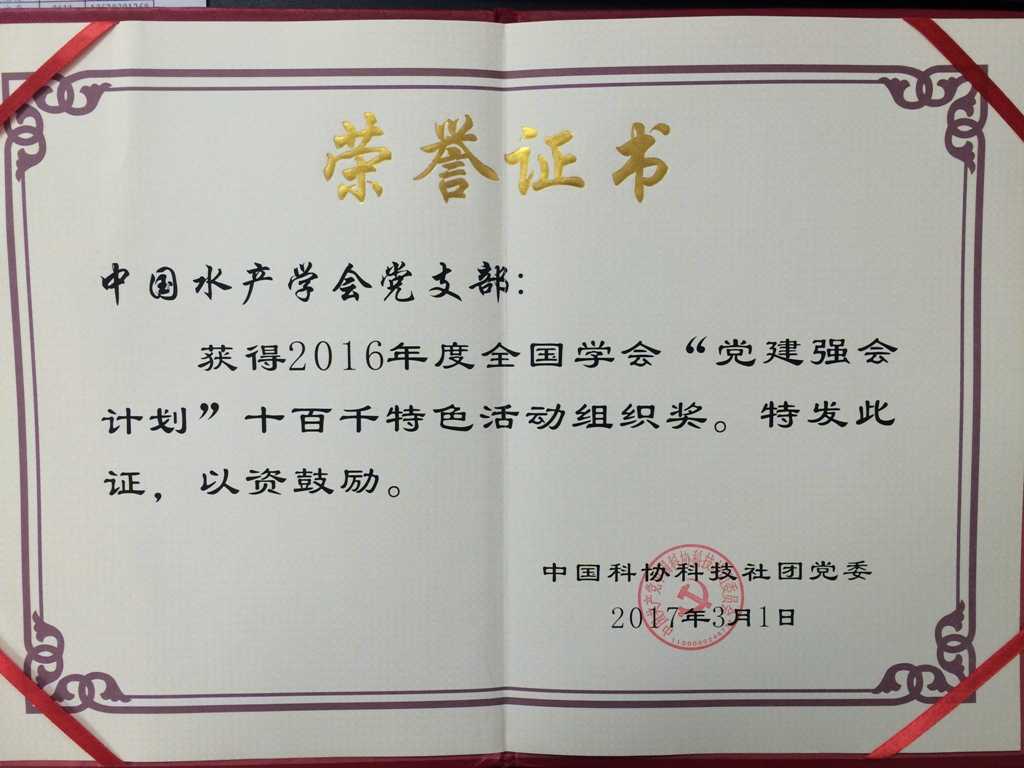 荣誉证书
中国水产学会党支部：
获得2016年度全国学会“党建强会
计划”十百千特色活动组织奖。特发此
证，以资鼓励。
中国科协科技社团党委
2017年3月1日